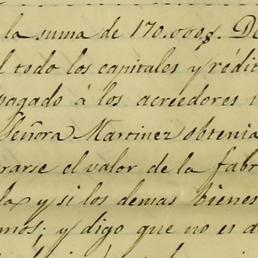 la suma de 170.000$. De
todo los capitales y rédit
pagado á los acreedores
Señora Martinez obtenia
rarse el valor de la fabr
la y si los demas bienes
mos; y digo que no es a